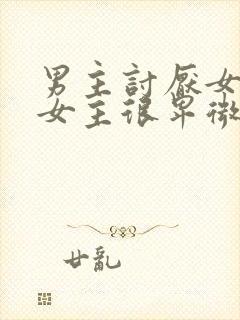 男主討厭女
女主很卑微
廿亂